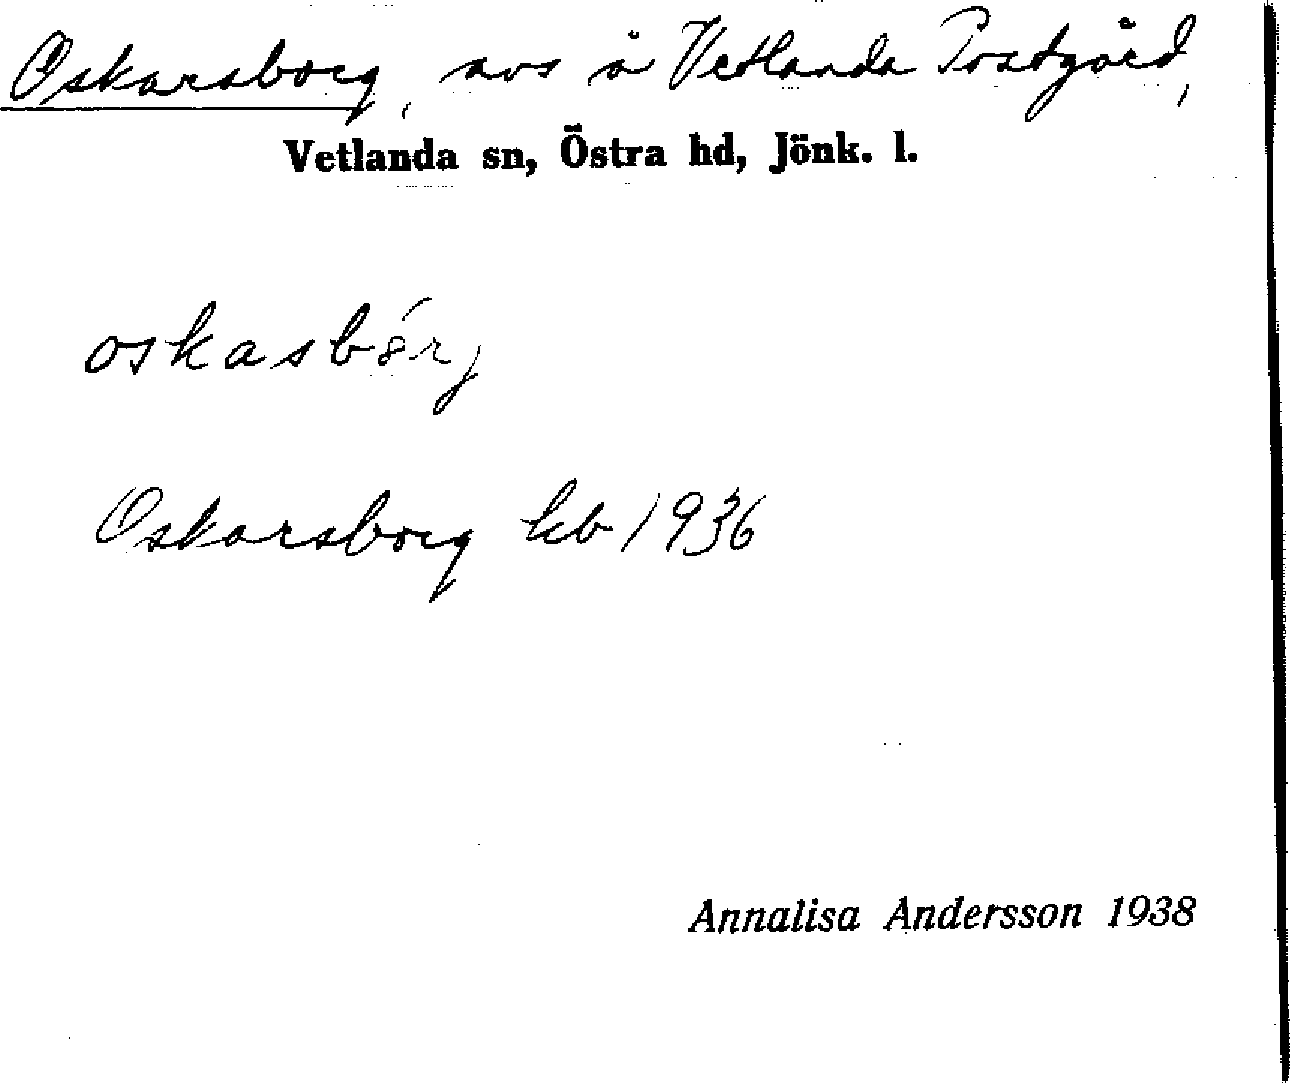 Oskarsborg, avs å Vetlanda Prästgård,
Vetlanda sn, Östra hd, Jönk. l.
Oskarsborg kb 1936
Annalisa Andersson 1938